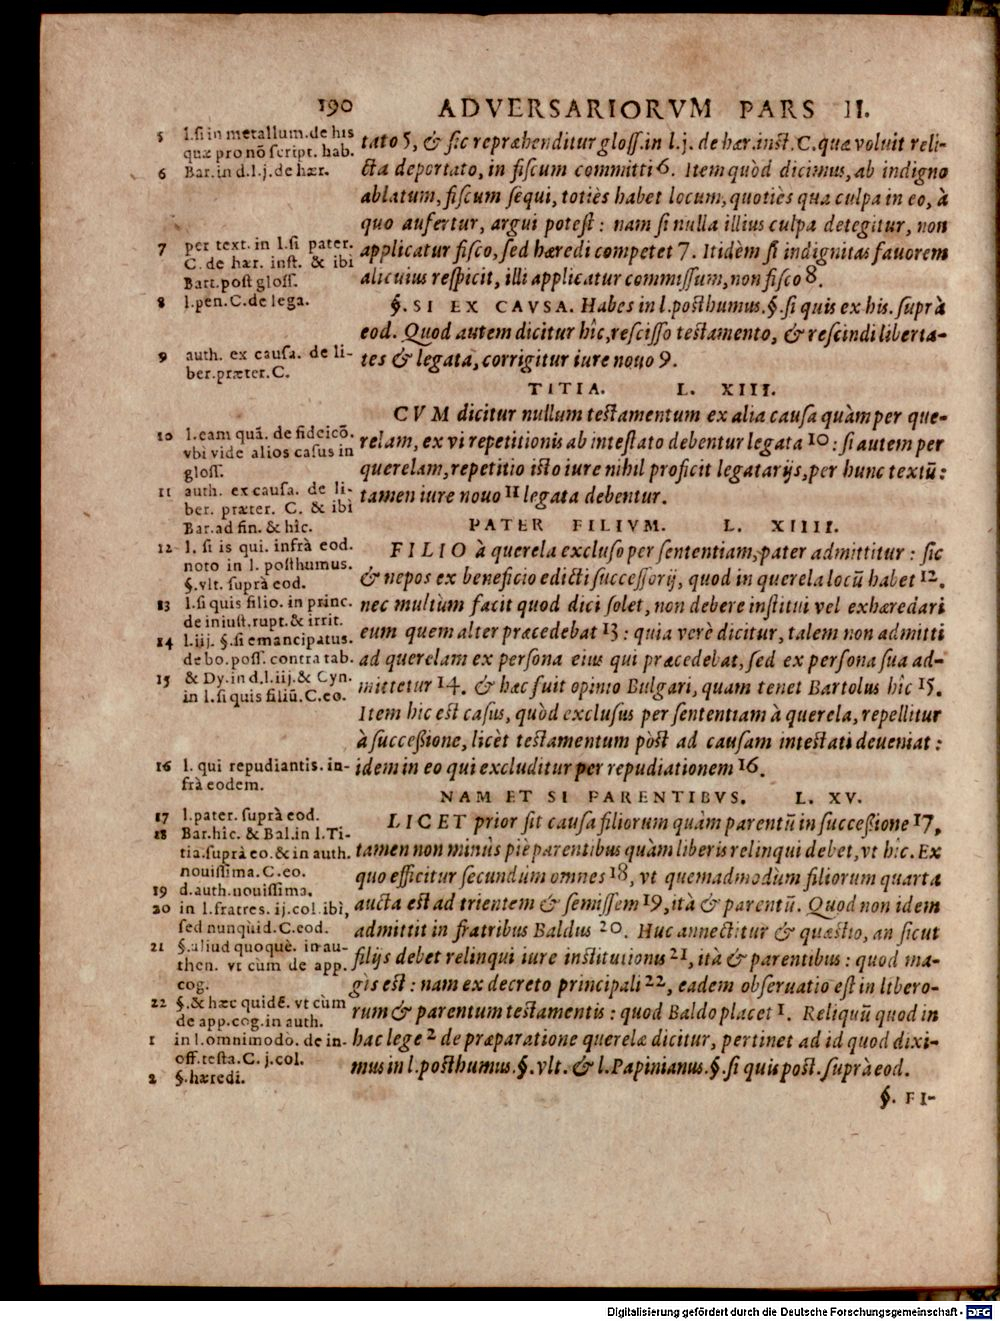 190 ADVERSARIORVM PARS II.
5 l.si in metallum.de his
quæ pro nõ script. hab.
6 Bar.in d.l.j.de hær.
7 per text. in l.si pater.
C. de hær. inst. & ibi
Bart.post gloss.
8 l.pen.C.de lega.
9 auth. ex causa. de li-
ber.præter.C.
10 l.eam quã. de fideicõ.
vbi vide alios casus in
gloss.
11 auth. ex causa. de li-
ber. præter. C. & ibi
Bar.ad fin. & hîc.
12 l. si is qui. infrà eod.
noto in l. posthumus.
§.vlt. suprà eod.
13 l.si quis filio. in princ.
de iniust.rupt.& irrit.
14 l.iij. §.si emancipatus.
de bo. poss. contra tab.
15 & Dy.in d.l.iij.& Cyn.
in l.si quis filiũ.C.eo.
16 l. qui repudiantis. in-
frà eodem.
17 l.pater. suprà eod.
18 Bar.hîc. & Bal.in l.Ti-
tia.suprà eo.& in auth.
nouissima.C.eo.
19 d.auth.nouissima.
20 in l.fratres. ij.col.ibì,
sed nunquid.C.eod.
21 §.aliud quoquè. in au-
then. vt cùm de app.
cog.
22 §.& hæc quidẽ. vt cùm
de app.cog.in auth.
1 in l.omnimodò. de in-
off.testa.C. j.col.
2 §.hæredi.
tato 5, & sic repræhenditur gloss.in l.j. de hær.inst.C.quæ voluit reli-
cta deportato, in fiscum committi 6. Item quòd dicimus, ab indigno
ablatum, fiscum sequi, totiès habet locum, quotiès qua culpa in eo, à
quo aufertur, argui potest : nam si nulla illius culpa detegitur, non
applicatur fisco, sed hæredi competet 7. Itidèm si indignitas fauorem
alicuius respicit, illi applicatur commissum, non fisco 8.
§. SI EX CAVSA. Habes in l.posthumus.§.si quis ex his. suprà
eod. Quod autem dicitur hîc,rescisso testamento, & rescindi liberta-
tes & legata, corrigitur iure nouo 9.
TITIA. L. XIII.
CVM dicitur nullum testamentum ex alia causa quàm per que-
relam, ex vi repetitionis ab intestato debentur legata 10 : si autem per
querelam, repetitio isto iure nihil proficit legatarijs, per hunc textũ:
tamen iure nouo 11 legata debentur.
PATER FILIVM. L. XIIII.
FILIO à querela excluso per sententiam, pater admittitur : sic
& nepos ex beneficio edicti successorij, quod in querela locũ habet 12.
nec multùm facit quod dici solet, non debere institui vel exhæredari
eum quem alter præcedebat 13 : quia verè dicitur, talem non admitti
ad querelam ex persona eius qui præcedebat, sed ex persona sua ad-
mittetur 14. & hæc fuit opinio Bulgari, quam tenet Bartolus hîc 15.
Item hic est casus, quòd exclusus per sententiam à querela, repellitur
à successione, licèt testamentum pòst ad causam intestati deueniat :
idem in eo qui excluditur per repudiationem 16.
NAM ET SI PARENTIBVS. L. XV.
LICET prior sit causa filiorum quàm parentũ in successione 17,
tamen non minùs piè parentibus quàm liberis relinqui debet, vt hîc. Ex
quo efficitur secundùm omnes 18, vt quemadmodùm filiorum quarta
aucta est ad trientem & semissem 19, ità & parentũ. Quod non idem
admittit in fratribus Baldus 20. Huc annectitur & quæstio, an sicut
filijs debet relinqui iure institutionis 21, ità & parentibus : quod ma-
gis est : nam ex decreto principali 22, eadem obseruatio est in libero-
rum & parentum testamentis : quod Baldo placet 1. Reliquũ quod in
hac lege 2 de præparatione querelæ dicitur, pertinet ad id quod dixi-
mus in l.posthumus.§.vlt. & l.Papinianus.§.si quis post.suprà eod.
§. FI-
Digitalisierung gefördert durch die Deutsche Forschungsgemeinschaft - DFG